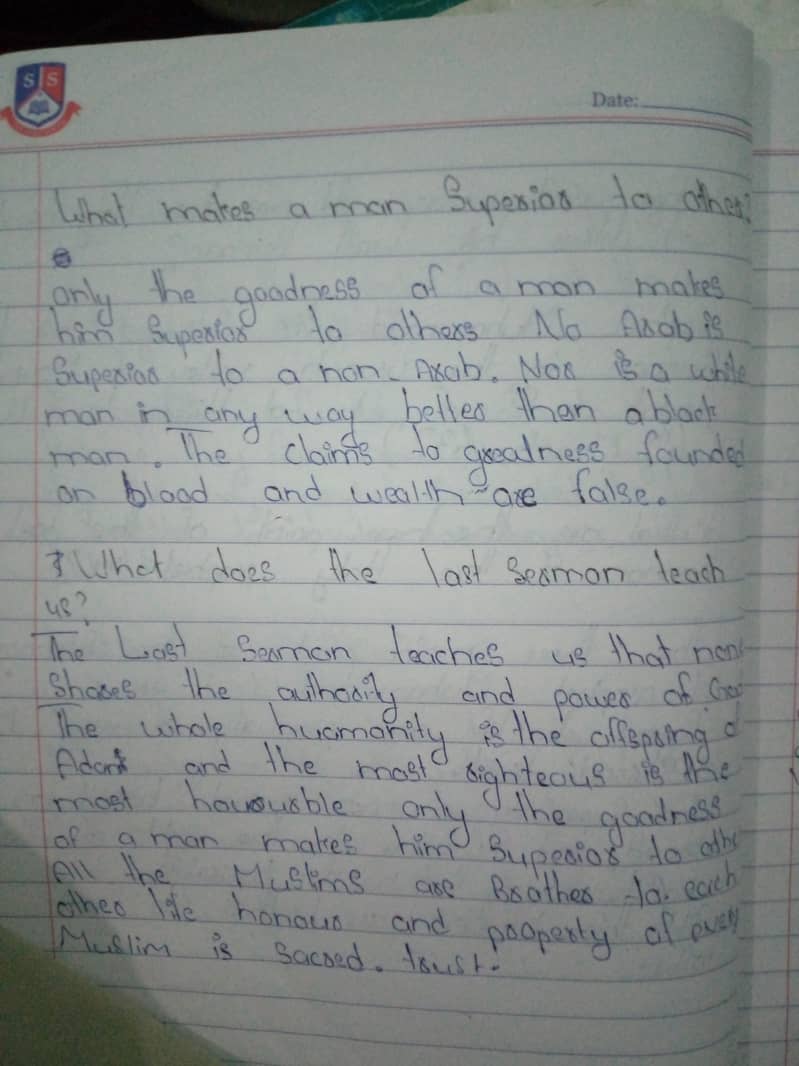 S S
Date:
What makes a man Superior to others?
only the goodness of a man makes
him Superior to others No Arab is
Superior to a non-Arab. Nor is a white
man in any way better than a black
man. The claims to greatness founded
on blood and wealth are false.
? What does the last Sermon teach
us?
The Last Sermon teaches us that none
Shares the authority and power of God
The whole huamanity is the offspring of
Adam and the most righteous is the
most honourble only the goodness
of a man makes him Superior to othe
All the Muslims are Brother to each
other life honour and property of every
Muslim is Sacred. trust.